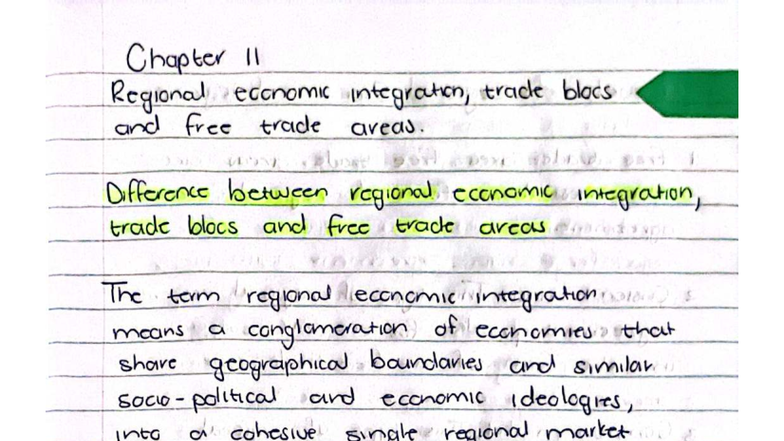 Chapter 11
Regional economic integration, trade blocs
and free trade areas.
Difference between regional economic integration,
trade blocs and free trade areas
The term regional economic integration
means a conglomeration of economies that
share geographical boundaries and similar
socio-political and economic ideologies,
into a cohesive single regional market